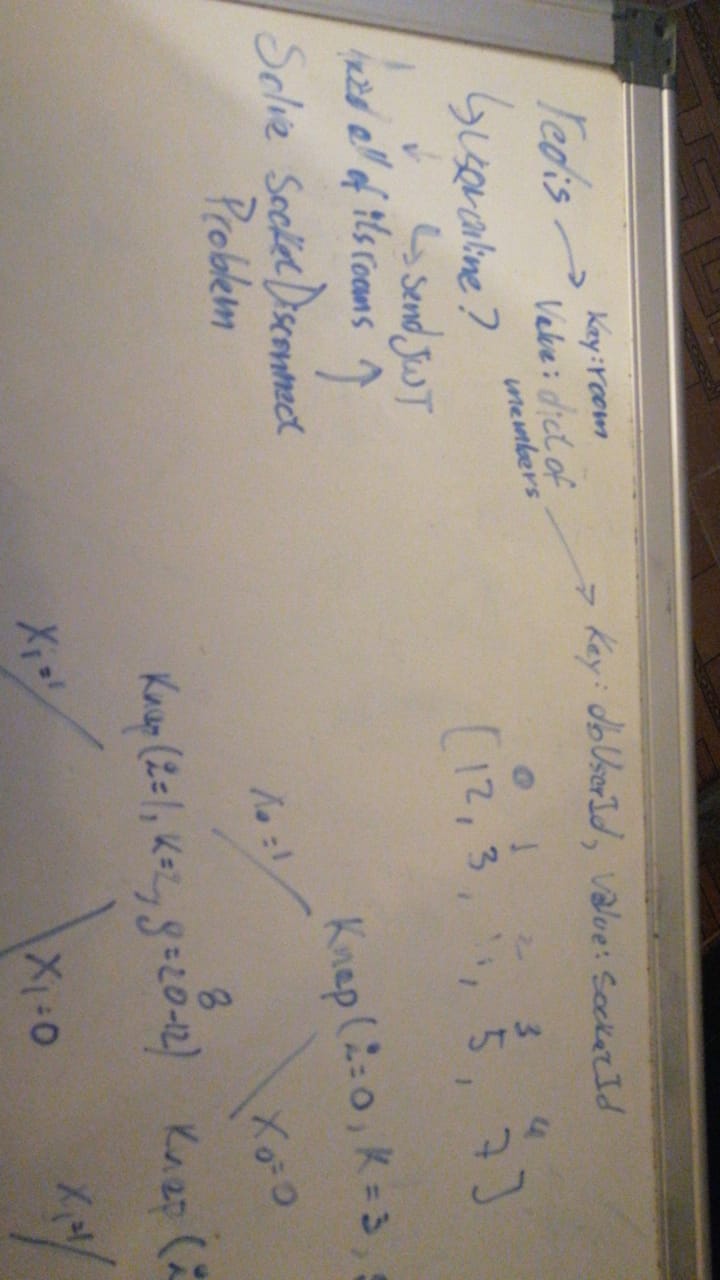 redis → Key: room
Value: dict of
members → Key: dbUserId, Value: SocketId
↳ User online?
↳ Send JWT
all of its rooms
Solve Socket Disconnect
Problem
0 1 2 3 4
[12, 3, , 5, 7]
Knap(i=0, K=3,
X0=1 X0=0
8
Knap(i=1, K=2, g=20-12) Knap(i
X1=1 X1=0 X1=1